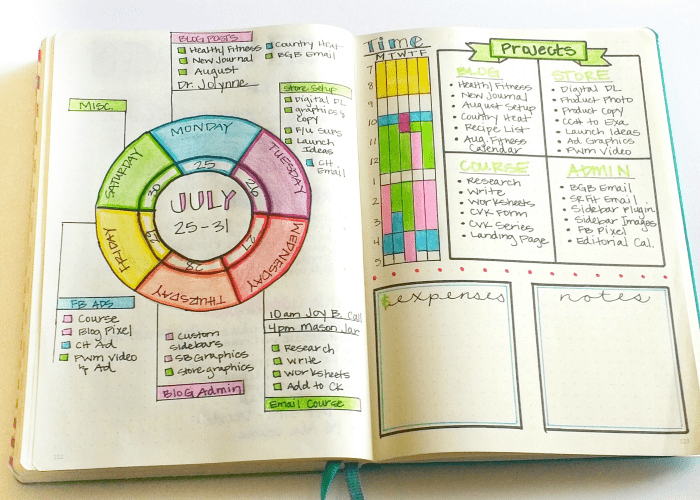 BLOG POSTS
Healthy Fitness
New Journal
August
Dr. Jolynne
Country Heat
BGB Email
Store Setup
Digital DL
graphics &
copy
F/u Sups
Launch
Ideas
CH
Email
MISC.
MONDAY
25
TUESDAY
26
WEDNESDAY
27
THURSDAY
28
FRIDAY
29
SATURDAY
30
JULY
25-31
FB ADS
Course
Blog Pixel
CH Ad
PWM Video
& Ad
Custom
sidebars
SB Graphics
Store graphics
Blog Admin
10am Joy B. Call
4pm Mason Jar
Research
Write
Worksheets
Add to CK
Email Course
Time
M T W T F
7
8
9
10
11
12
1
2
3
4
5
Projects
BLOG
• Healthy Fitness
• New Journal
• August Setup
• Country Heat
• Recipe List
• Aug. Fitness
Calendar
STORE
• Digital DL
• Product Photo
• Product Copy
• CCH to Exa
• Launch Ideas
• Ad Graphics
• PWM Video
COURSE
• Research
• Write
• Worksheets
• CVK Form
• CVK Series
• Landing Page
ADMIN
• BGB Email
• SR Fit Email
• Sidebar Plugin
• Sidebar Images
• FB Pixel
• Editorial Cal.
$ expenses
notes